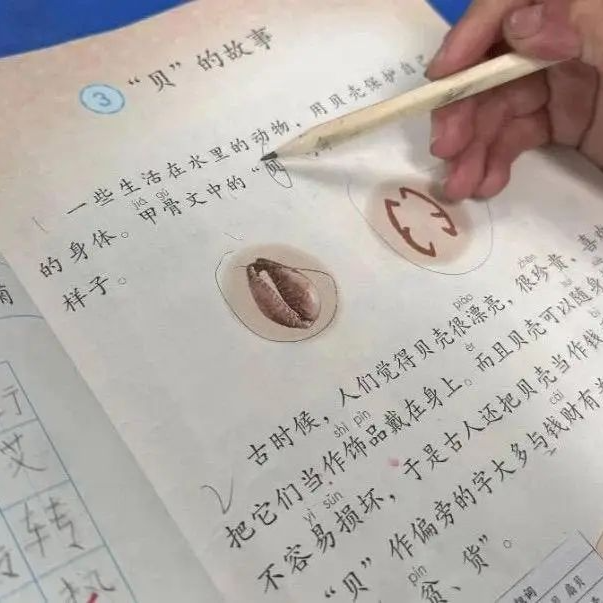 3 “贝”的故事
一些生活在水里的动物，用贝壳保护自己
jiǎ gǔ
的身体。甲骨文中的“贝”
样子。
piào zhēn
古时候，人们觉得贝壳很漂亮，很珍贵，喜
shì pǐn ér
把它们当作饰品戴在身上。而且贝壳可以随身
yì sǔn cái
不容易损坏，于是古人还把贝壳当作钱
“贝”作偏旁的字大多与钱财有
pín
贫、货”。
行
艾
转